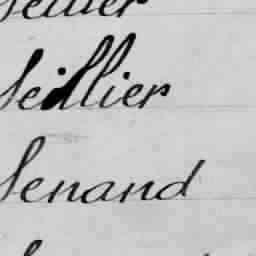 Seillier
Senand